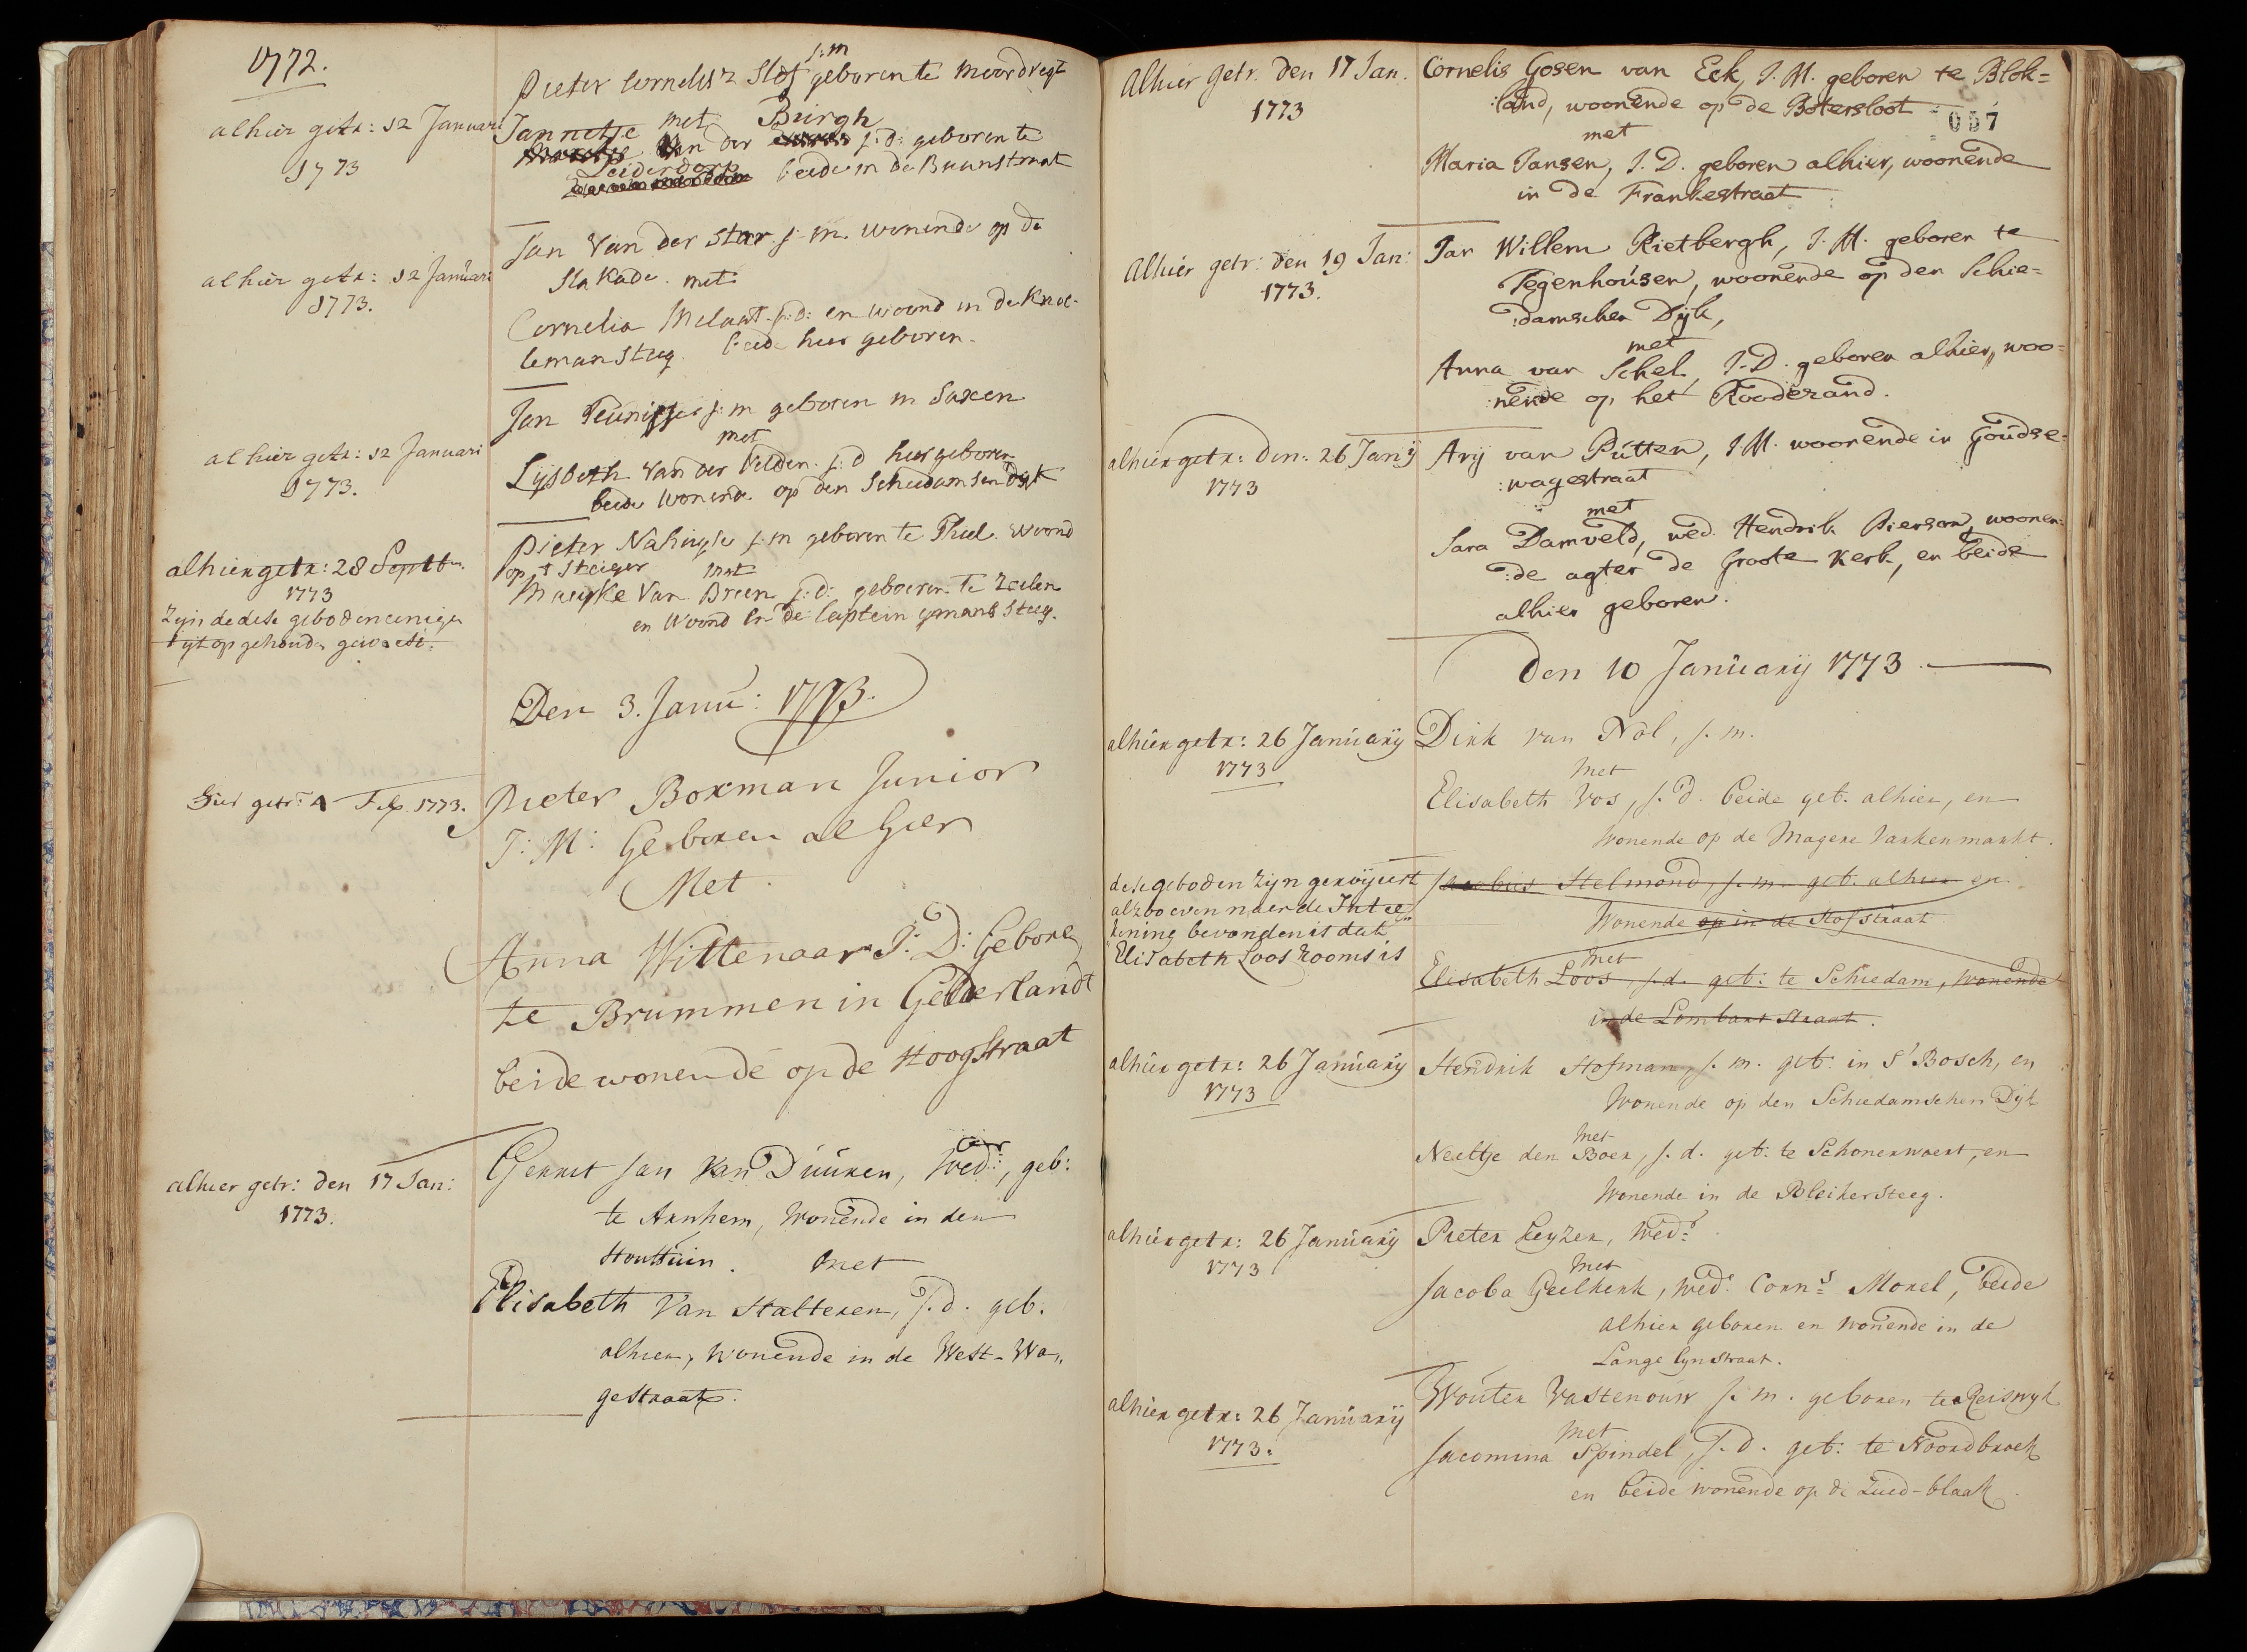 1772.
Pieter Cornelisz Slof j:m geboren te Moordregt
alhier getr: 12 Januari
1773
met
Jannetje Van der Burgh j:d: geboren te
Leiderdorp beide in de Baanstraat
alhier getr: 12 Januari
1773.
Jan Van der Star j:m. wonende op de
Sla Kade. met
Cornelia Melaart j:d: en woond in de Knoe-
lemansteeg. beide hier geboren.
alhier getr: 12 Januari
1773.
Jan Teunisse j:m geboren in Saxen
met
Lijsbeth Van der Velden. j:d hier geboren
beide wonende op den Schiedamsendijk
alhier getr: 28 Septbr.
1773
Zijn de dese geboden eenigen
tijt opgehoude geweest.
Pieter Nahuijse j:m geboren te Thiel. woond
op 't Steiger met
Maeijke Van Breen j:d: geboren te Zoelen
en Woond in de Captein ijmans Steeg.
Den 3. Janu: 1773.
Hier getr: 4 Feb 1773.
Pieter Boxman Junior
J: M: Geboren al hier
Met
Anna Wittenaar J: D: Geboren
te Brummen in Gelderlandt
beide wonende op de Hoogstraat
alhier getr: den 17 Jan:
1773.
Gerrit Jan Van Duuren, Wedr, geb:
te Arnhem, Wonende in den
Houttuin. met
Elisabeth Van Halteren, J.d. geb.
alhier, wonende in de West-Wa„
gestraat.
Alhier Getr. den 17 Jan.
1773
Cornelis Gosen van Eck, J. M. geboren te Blok=
:land, woonende op de Botersloot
057
met
Maria Jansen, J. D. geboren alhier, woonende
in de Frankestraat
Alhier getr: den 19 Jan:
1773.
Jan Willem Rietbergh, J. M. geboren te
Tegenhousen, woonende op den Schie=
:damschen Dijk,
met
Anna van Schel, J. D. geboren alhier, woo=
:nende op het Roodezand.
alhier getr: den: 26 Janij
1773
Arij van Putten, J. M. woonende in Goudse=
:wagestraat
met
Sara Damveld, wed. Hendrik Pierson, woonen=
:de agter de Groote Kerk, en beide
alhier geboren.
Den 10 Januarij 1773.
alhier getr: 26 Januarij
1773
Dirk van Nol, j. m.
Met
Elisabeth Vos, j. d. beide geb. alhier, en
Wonende op de Magere Varkenmarkt.
dese geboden zijn geroijeert
alzoo even naer de Intee„
kening bevonden is dat
Elisabeth Loos Rooms is
Jacobus Helmond, j. m. geb. alhier en
Wonende op in de Hofstraat
Met
Elisabeth Loos, j. d. geb: te Schiedam, Wonende
in de Lombart Straat.
alhier getr: 26 Januarij
1773
Hendrik Hofman, j. m. geb: in s'Bosch, en
Wonende op den Schiedamschen Dijk
Met
Neeltje den Boer, j. d. geb: te Schonerwoert, en
Wonende in de Bleikersteeg.
alhier getr: 26 Januarij
1773
Pieter Keyzer, Wedr.
Met
Jacoba Geelkerk, wed. Corns Morel, beide
alhier geboren en wonende in de
Lange lynstraat.
alhier getr: 26 Januarij
1773.
Wouter Vastenouw j. m. geboren te Reiswyk
Met
Jacomina Spindel, J. d. geb: te Noordbroek
en beide wonende op de Zuid-blaak.